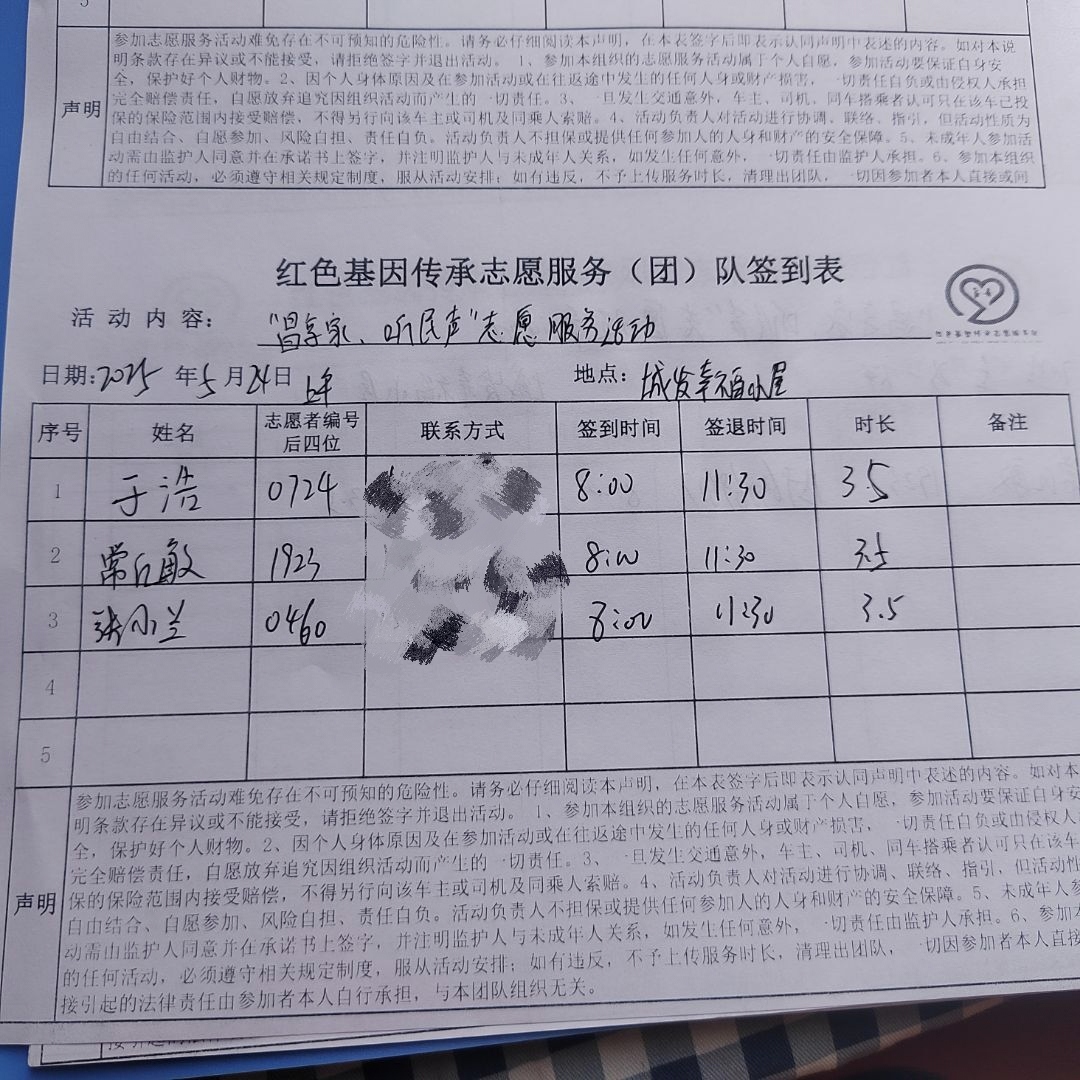 5
参加志愿服务活动难免存在不可预知的危险性。请务必仔细阅读本声明，在本表签字后即表示认同声明中表述的内容。如对本说
明条款存在异议或不能接受，请拒绝签字并退出活动。 1、参加本组织的志愿服务活动属于个人自愿，参加活动要保证自身安
全，保护好个人财物。2、因个人身体原因及在参加活动或在往返途中发生的任何人身或财产损害，一切责任自负或由侵权人承担
完全赔偿责任，自愿放弃追究因组织活动而产生的一切责任。3、一旦发生交通意外，车主、司机、同车搭乘者认可只在该车已投
声明
保的保险范围内接受赔偿，不得另行向该车主或司机及同乘人索赔。4、活动负责人对活动进行协调、联络、指引，但活动性质为
自由结合、自愿参加、风险自担、责任自负。活动负责人不担保或提供任何参加人的人身和财产的安全保障。5、未成年人参加活
动需由监护人同意并在承诺书上签字，并注明监护人与未成年人关系，如发生任何意外，一切责任由监护人承担。6、参加本组织
的任何活动，必须遵守相关规定制度，服从活动安排；如有违反，不予上传服务时长，清理出团队，一切因参加者本人直接或间
红色基因传承志愿服务（团）队签到表
活动内容：“昌享家、听民声”志愿服务活动
日期:2025年5月24日 上午 地点：城发幸福小屋
序号 姓名 志愿者编号后四位 联系方式 签到时间 签退时间 时长 备注
1 于浩 0724 8:00 11:30 3.5
2 1923 8:00 11:30 3.5
3 张小兰 0460 8:00 11:30 3.5
4
5
参加志愿服务活动难免存在不可预知的危险性。请务必仔细阅读本声明，在本表签字后即表示认同声明中表述的内容。如对本
明条款存在异议或不能接受，请拒绝签字并退出活动。 1、参加本组织的志愿服务活动属于个人自愿，参加活动要保证自身安
全，保护好个人财物。2、因个人身体原因及在参加活动或在往返途中发生的任何人身或财产损害，一切责任自负或由侵权人
完全赔偿责任，自愿放弃追究因组织活动而产生的一切责任。3、一旦发生交通意外，车主、司机、同车搭乘者认可只在该车
保的保险范围内接受赔偿，不得另行向该车主或司机及同乘人索赔。4、活动负责人对活动进行协调、联络、指引，但活动性
声明
自由结合、自愿参加、风险自担、责任自负。活动负责人不担保或提供任何参加人的人身和财产的安全保障。5、未成年人参
动需由监护人同意并在承诺书上签字，并注明监护人与未成年人关系，如发生任何意外，一切责任由监护人承担。6、参加本
的任何活动，必须遵守相关规定制度，服从活动安排；如有违反，不予上传服务时长，清理出团队，一切因参加者本人直接
接引起的法律责任由参加者本人自行承担，与本团队组织无关。